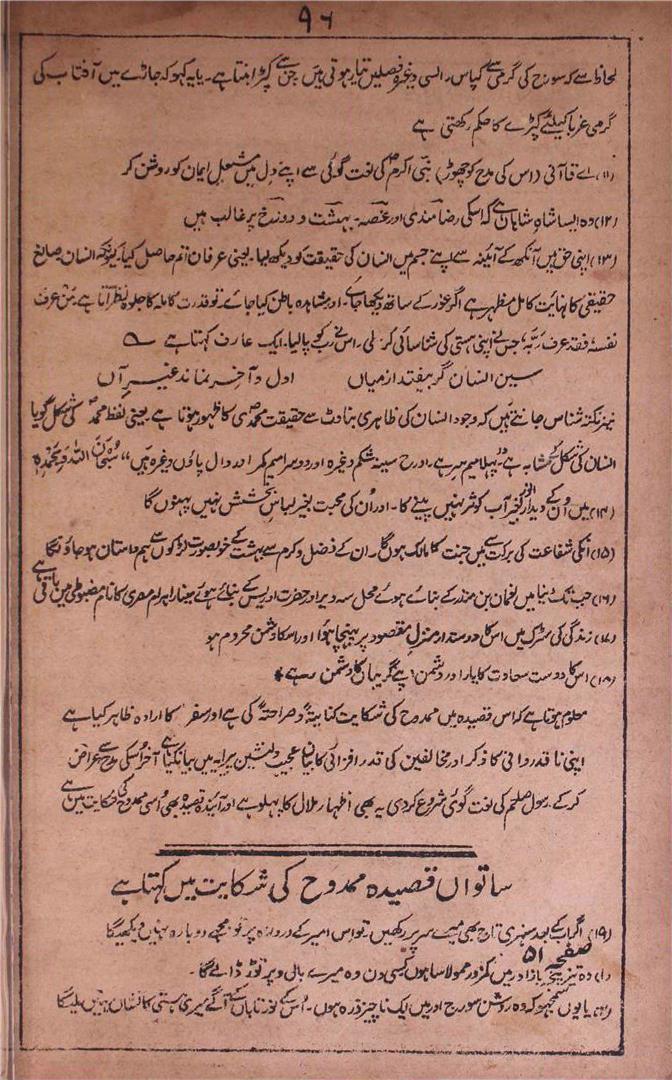 ۹۶
لحاظ سے کہ سورج کی گرمی سے کپاس۔ السی وغیرہ فصلیں تیار ہوتی ہیں جن سے کپڑا بنتا ہے۔ یا یہ کہو کہ جاڑے میں آفتاب کی
گرمی غربا کیلئے کپڑے کا حکم رکھتی ہے
(۱۱) اے قاآنی (اس کی مدح کو چھوڑ) نبی اکرمؐ کی نعت گوئی سے اپنے دل میں مشعل ایمان کو روشن کر
(۱۲) وہ ایسا شاہِ شاہان ہے کہ اسکی رضامندی اور غصہ۔ بہشت و دوزخ پر غالب ہیں
(۱۳) اپنی حق بیں آنکھ کے آئینہ سے اپنے جسم میں انسان کی حقیقت کو دیکھ لیا۔ یعنی عرفان اتم حاصل کیا۔ کیونکہ انسان صانع
حقیقی کا نہایت کامل مظہر ہے اگر غور کے ساتھ دیکھا جائے۔ اور مشاہدہ باطن کیا جائے۔ تو قدرت کاملہ کا جلوہ نظر آتا ہے مَن عرف
نفسہٗ فقد عرف ربّہٗ، جس نے اپنی ہستی کی شناسائی کر لی۔ اس نے رب کو پا لیا۔ ایک عارف کہتا ہے
سین انسان گر بیفتد از میاں اول و آخر نماند غیر آں
نیز نکتہ شناس جانتے ہیں کہ وجود انسان کی ظاہری بناوٹ سے حقیقت محمدؐی کا ظہور ہوتا ہے یعنی لفظ محمدؐ کی شکل گویا
انسان کی شکل کے مشابہ ہے پہلا میم سر ہے۔ اور ح سینہ شکم وغیرہ اور دوسرا میم کمر اور دال پاؤں وغیرہ ہیں "سُبحَانَ اللہ وبحمدہ
(۱۴) میں اُن کے دیدار انور بغیر آب کوثر نہیں پینے کا۔ اور اُن کی محبت بغیر لباسِ بخشش نہیں پہنوں گا
(۱۵) انکی شفاعت کی برکت سے میں جنت کا مالک ہوں گا۔ ان کے فضل و کرم سے بہشت کے خوبصورت لڑکوں سے ہم داستان ہو جاؤنگا
(۱۶) جب تک دنیا میں نعمان بن منذر کے بنائے ہوئے محل سہ دیر اور حضرت ادریس کے بنائے ہوئے مینار اہرام مصری کا نام مضبوطی میں باقی ہے
(۱۷) زندگی کی سڑک میں اس کا دوستدار منزلِ مقصود پر پہنچا ہوا اور اسکا دشمن محروم ہو
(۱۸) اس کا دوست سعادت کا یار اور دشمن اپنے گریباں کا دشمن رہے
معلوم ہوتا ہے کہ اس قصیدہ میں ممدوح کی شکایت کنایۃً و صراحتہً کی ہے اور سفر کا ارادہ ظاہر کیا ہے
اپنی ناقدردانی کا ذکر اور مخالفین کی قدر افزائی کا بیان عجیب دلنشین پیرایہ میں بیان کیا ہے آخر اُسکی مدح سے اعراض
کر کے رسول صلعم کی نعت گوئی شروع کر دی یہ بھی اظہار ملال کا پہلو ہے اور آئیندہ قصیدہ بھی اُسی ممدوح کی شکایت میں ہے
ساتواں قصیدہ ممدوح کی شکایت میں کہتا ہے
(۱۹) اگر اب کے بعد سنہری تاج بھی میرے سر پر رکھیں۔ تو اس امیر کے دروازہ پر تو مجھے دوبارہ نہیں دیکھیگا
صفحہ ۵۱
(۱) وہ تیز پنجہ باز اور میں کمزور ممولا سا ہوں کیسی دن وہ میرے بال و پر توڑ ڈالے گا۔
(۲) یا یوں سمجھو کہ وہ روشن سورج اور میں ایک ناچیز ذرہ ہوں۔ اُس کے نور تاباں کے آگے میری ہستی کا نشان نہیں ملیگا